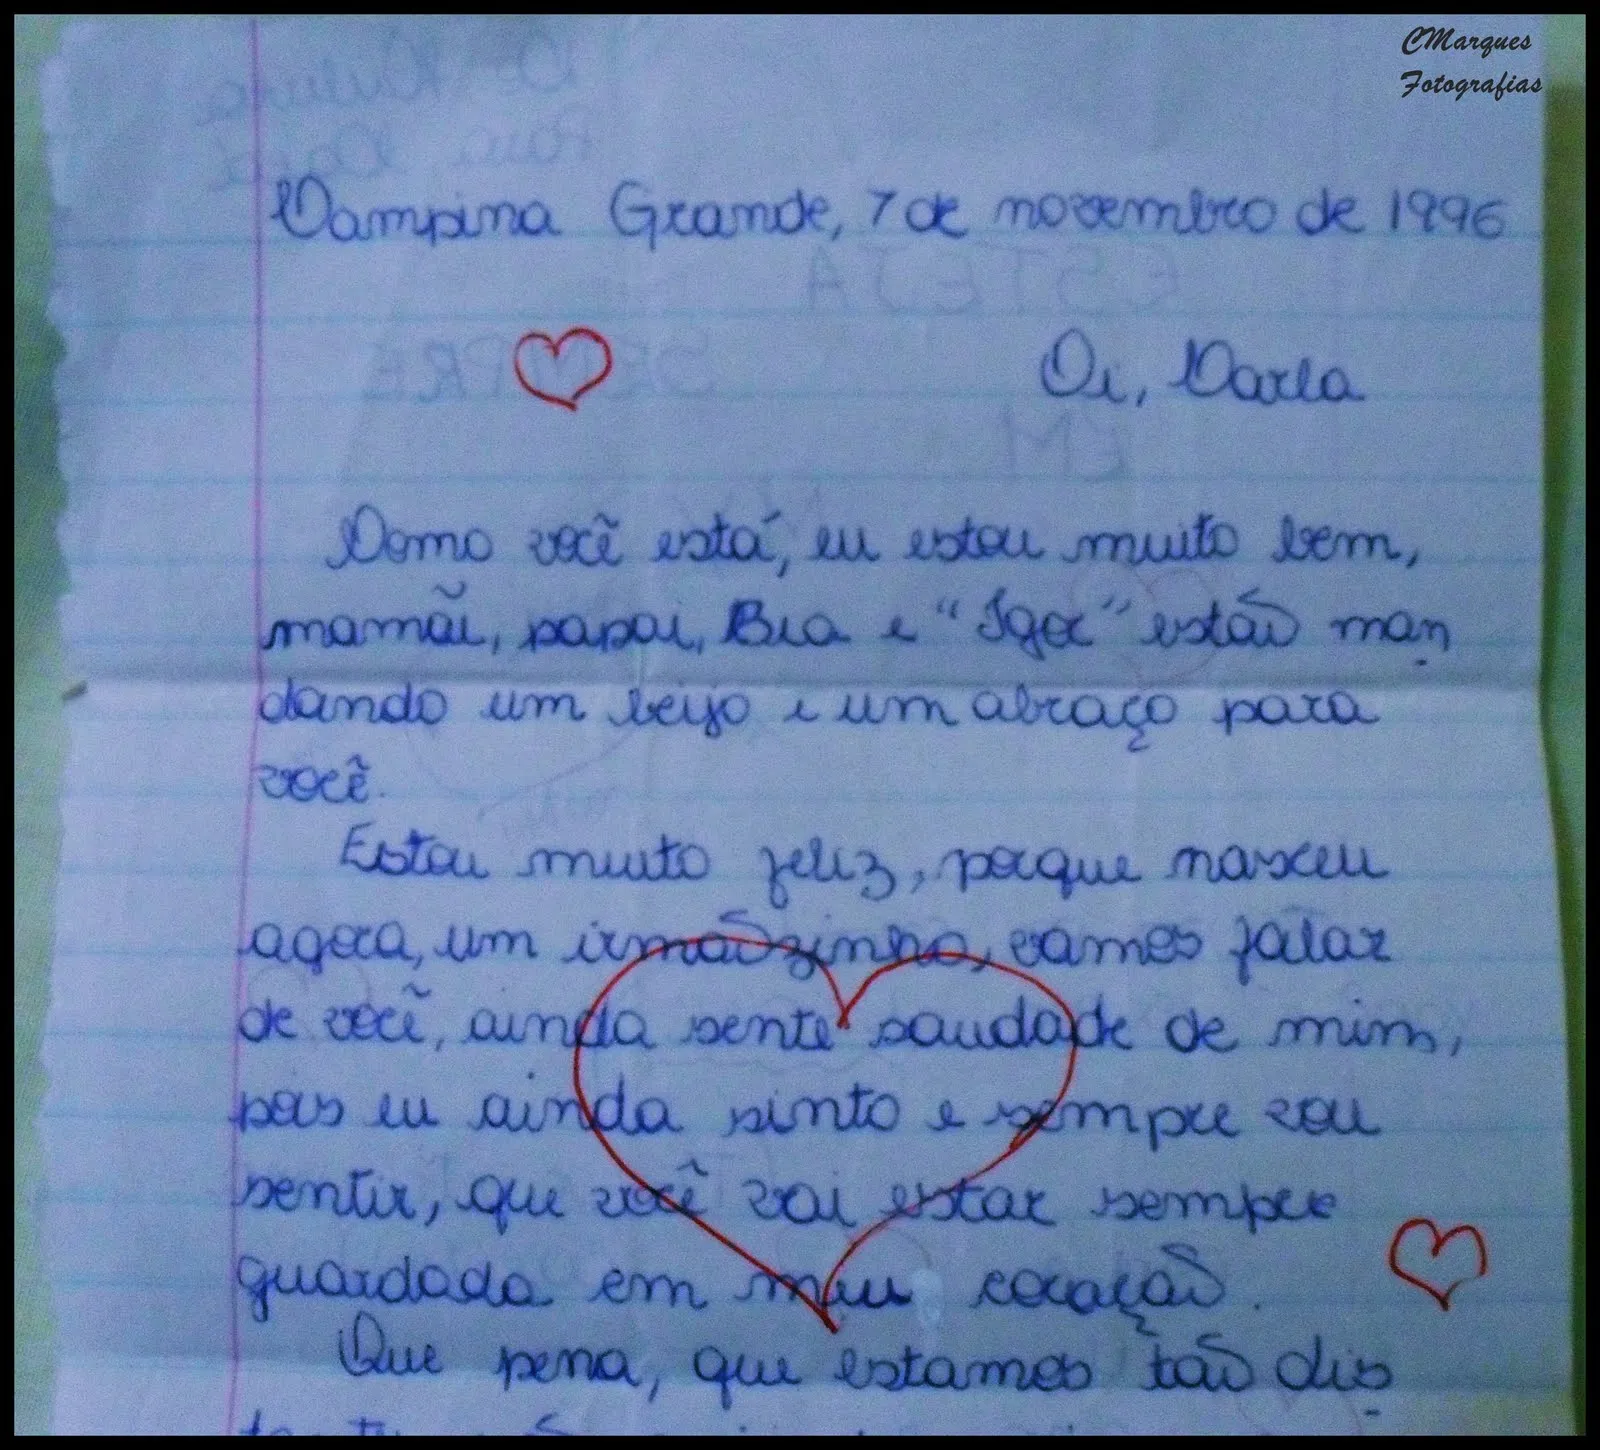 CMarques
Fotografias
Campina Grande, 7 de novembro de 1996
Oi, Carla
Como você está, eu estou muito bem,
mamãi, papai, Bia e "Igor" estão man
dando um beijo e um abraço para
você.
Estou muito feliz, porque nasceu
agora, um irmãozinho, vamos falar
de você, ainda sente saudade de mim,
pois eu ainda sinto e sempre vou
sentir, que você vai estar sempre
guardada em meu coração.
Que pena, que estamos tão dis
ESTEJA
SEMPRE
EM